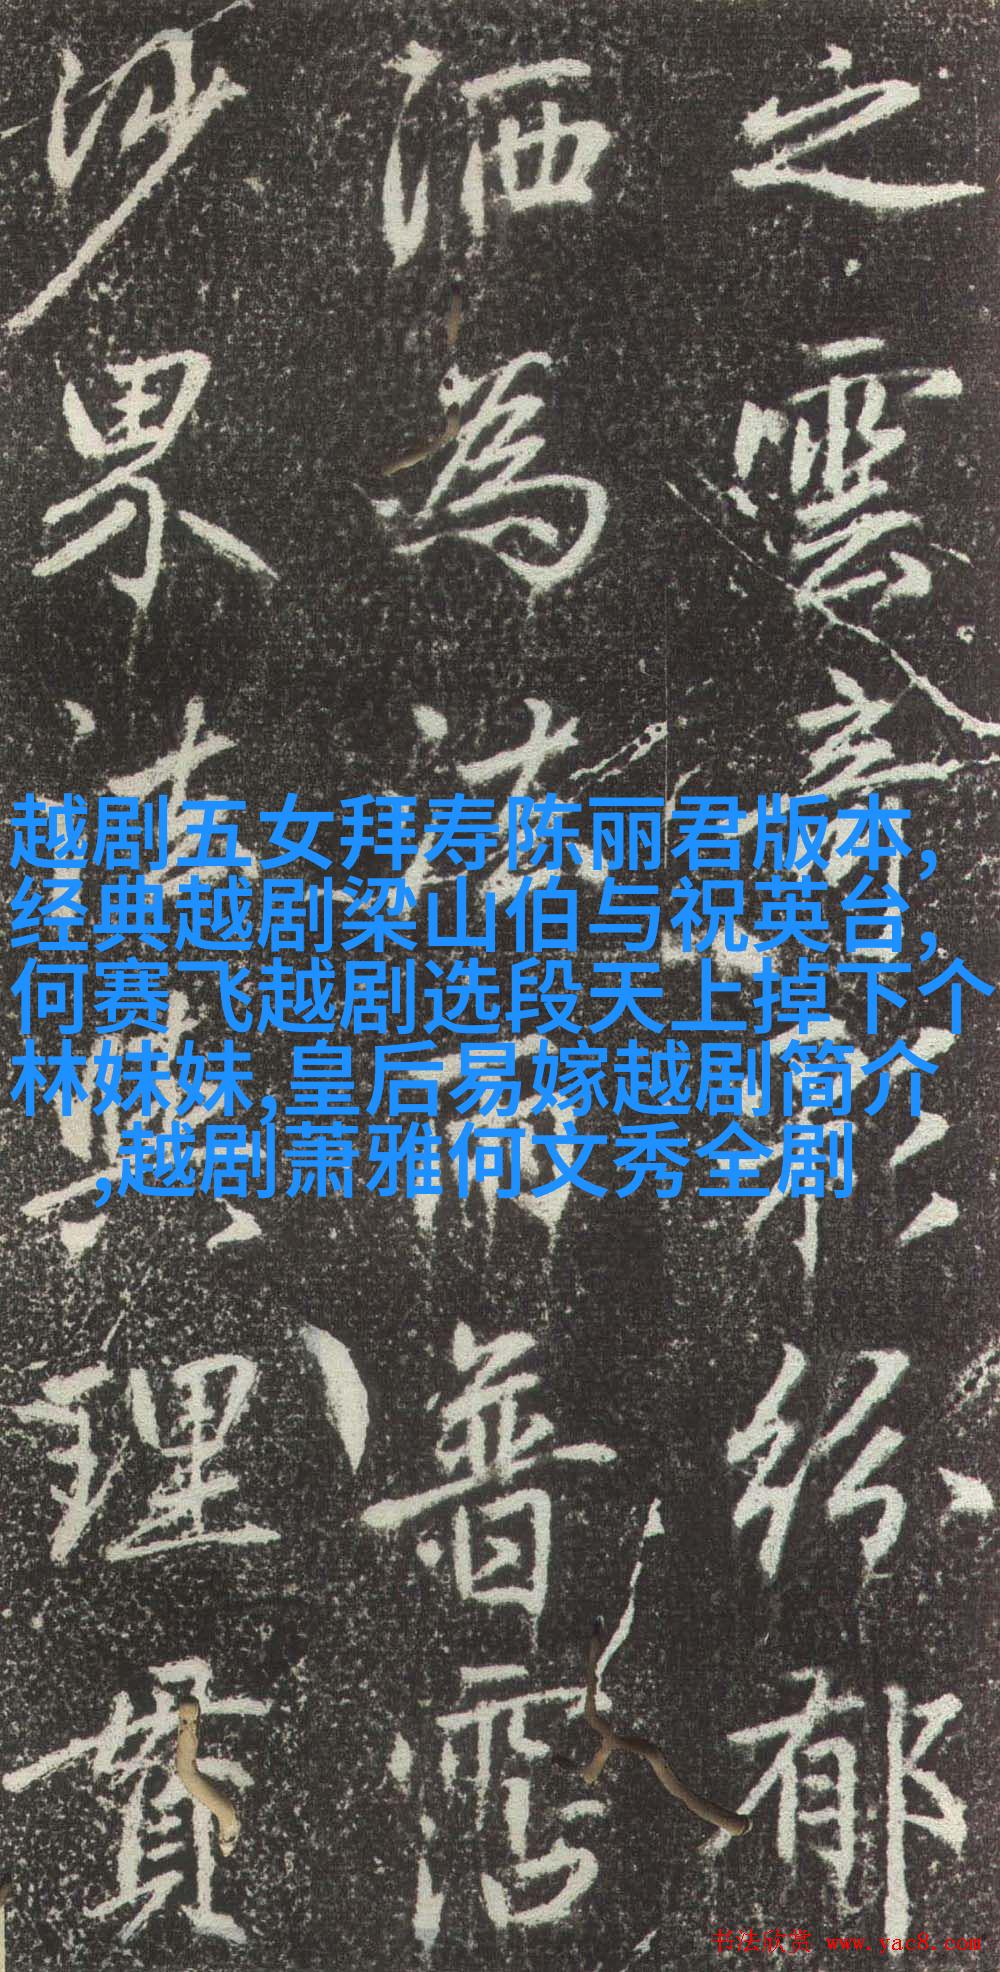 之雲紛郁
洒為法雨普霑
沙界法理貫
越剧五女拜寿陈丽君版本,
经典越剧梁山伯与祝英台,
何赛飞越剧选段天上掉下个
林妹妹,皇后易嫁越剧简介
,越剧萧雅何文秀全剧
书法欣赏 www.yac8.com